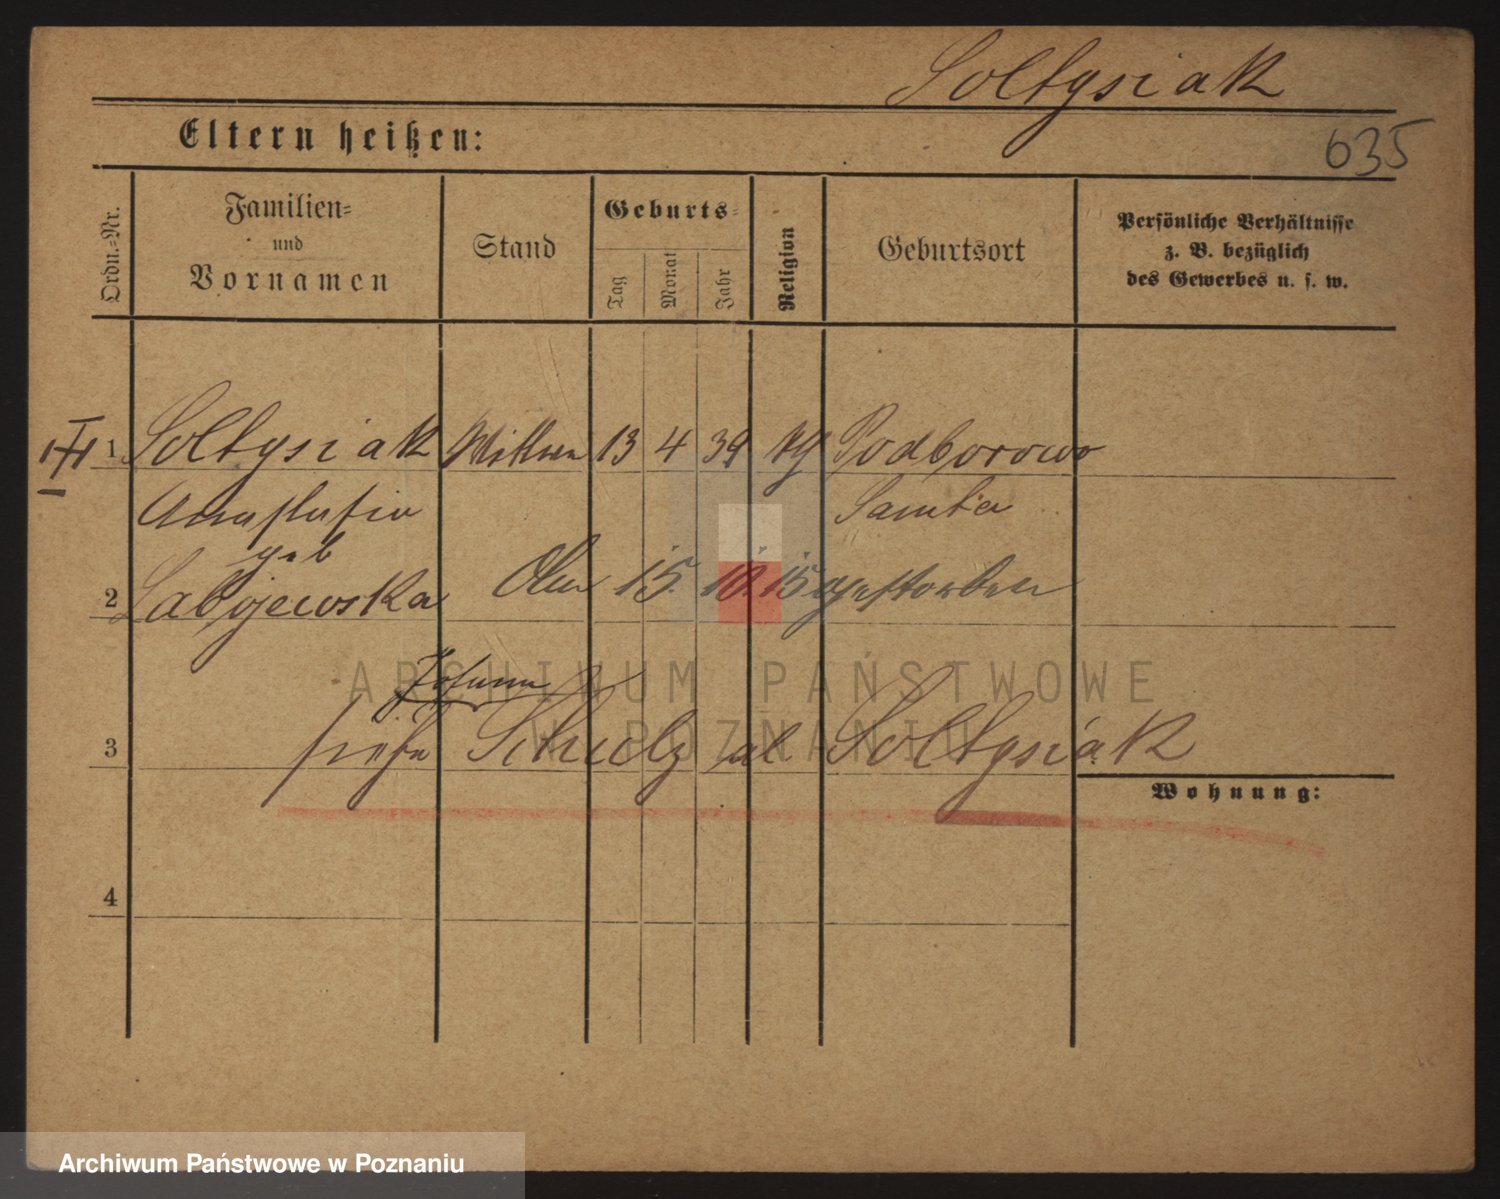 Soltysiak
Eltern heißen:
635
Ordn.-Nr.
Familien-
und
Vornamen
Stand
Geburts-
Tag
Monat
Jahr
Religion
Geburtsort
Persönliche Verhältnisse
z. B. bezüglich
des Gewerbes u. s. w.
1 Soltysiak Wittwe 13 4 39 Podborowo
Anastasia Samter
geb
2 Labojewska Am 15. 10. 15 gestorben
ARCHIWUM PAŃSTWOWE
W POZNANIU
Johann
3 siehe Schulz Soltysiak
Wohnung:
4
Archiwum Państwowe w Poznaniu